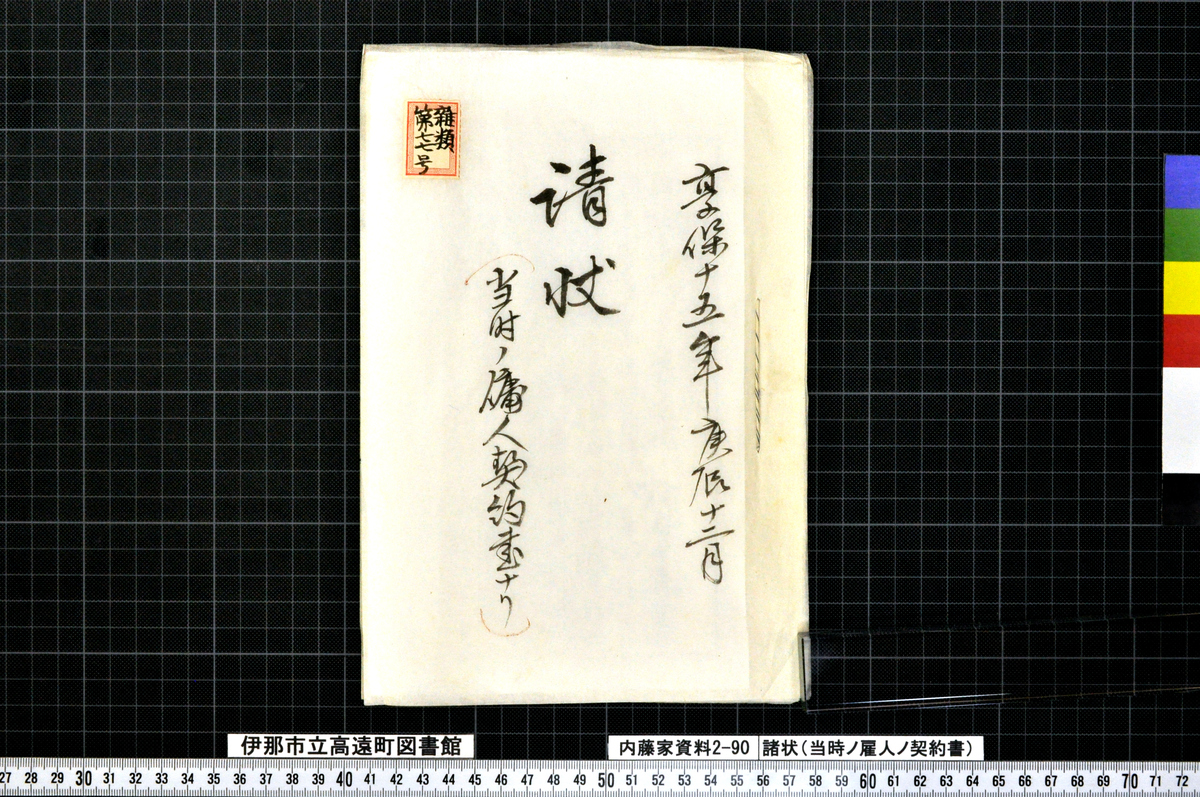 享保十五年庚辰十二月
請状
(当时ノ傭人契約書ナリ)
雜類
第七七号
伊那市立高遠町図書館
内藤家資料2-90
諸状(当時ノ雇人ノ契約書)
27 28 29 30 31 32 33 34 35 36 37 38 39 40 41 42 43 44 45 46 47 48 49 50 51 52 53 54 55 56 57 58 59 60 61 62 63 64 65 66 67 68 69 70 71 72